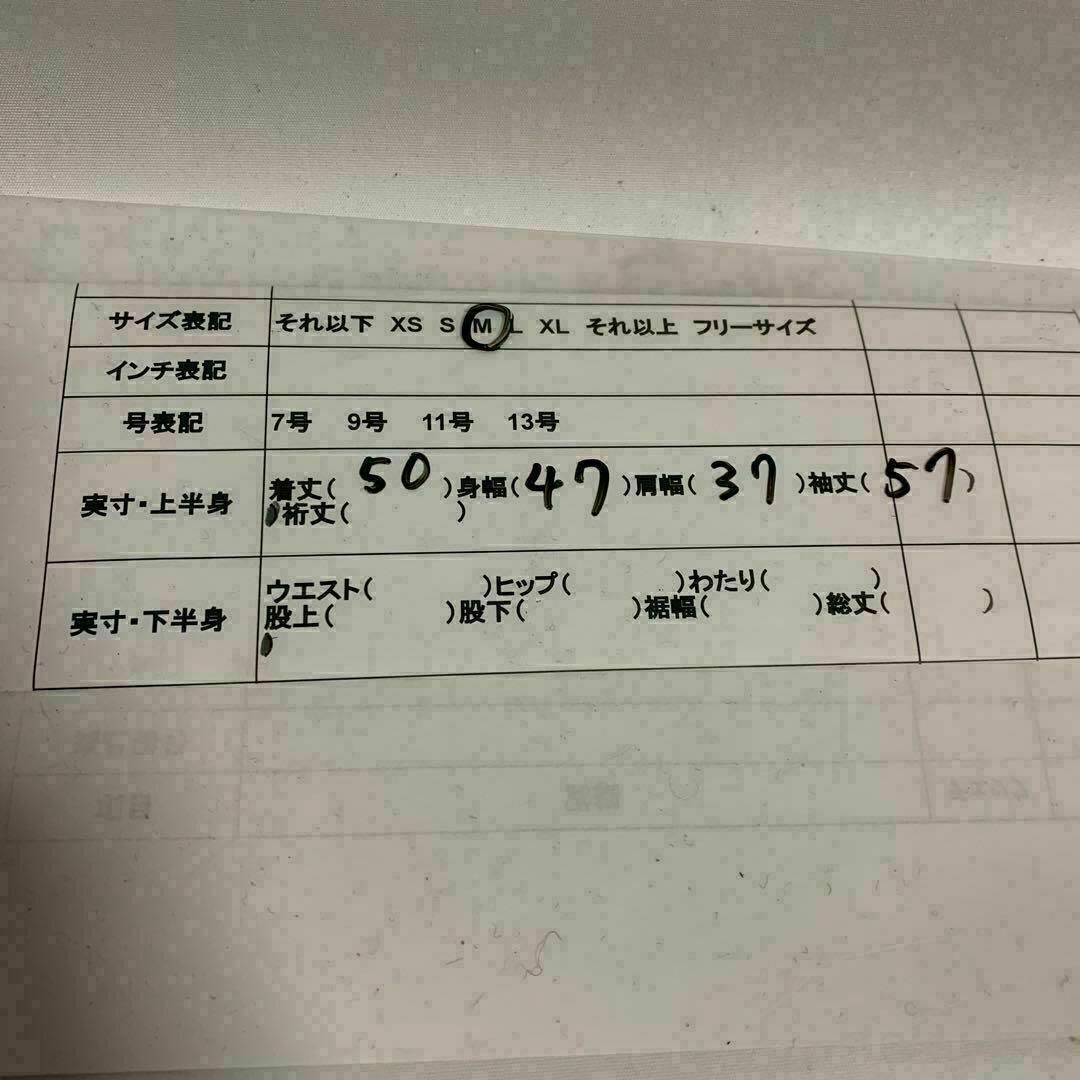 サイズ表記 それ以下 XS S M L XL それ以上 フリーサイズ
インチ表記
号表記 7号 9号 11号 13号
実寸・上半身 着丈( 50 )身幅( 47 )肩幅( 37 )袖丈( 57 )
裄丈( )
実寸・下半身 ウエスト( )ヒップ( )わたり( )
股上( )股下( )裾幅( )総丈( )